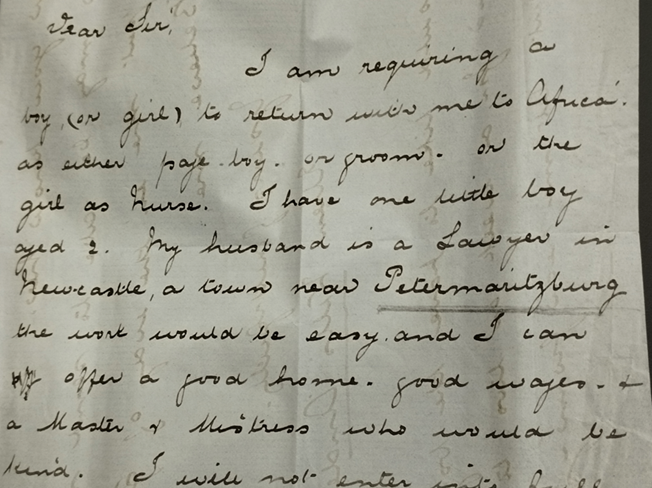 Dear Sir,
I am requiring a
boy, (or girl) to return with me to Africa.
as either page-boy. or groom. or the
girl as Nurse. I have one little boy
aged 2. My husband is a Lawyer in
Newcastle, a town near Petermaritzburg
the work would be easy. and I can
offer a good home. good wages. &
a Master & Mistress who would be
kind. I will not enter into full